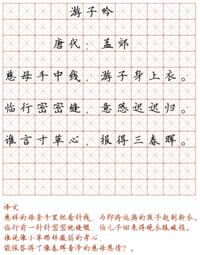 游子吟
唐代：孟郊
慈母手中线，游子身上衣。
临行密密缝，意恐迟迟归。
谁言寸草心，报得三春晖。
译文
慈祥的母亲手里把着针线，为即将远游的孩子赶制新衣。
临行前一针针密密地缝缀，怕儿子回来得晚衣服破损。
谁说像小草那样微弱的孝心，
能报答得了像春晖普泽的慈母恩情？